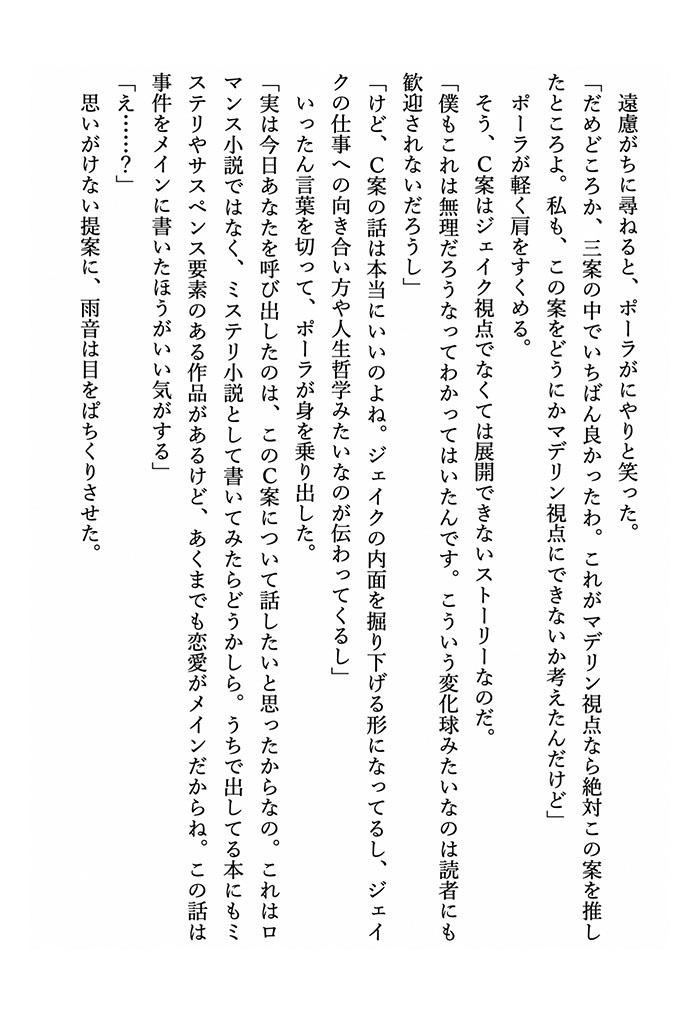 遠慮がちに尋ねると、ポーラがにやりと笑った。
「だめどころか、三案の中でいちばん良かったわ。これがマデリン視点なら絶対この案を推し
たところよ。私も、この案をどうにかマデリン視点にできないか考えたんだけど」
ポーラが軽く肩をすくめる。
そう、Ｃ案はジェイク視点でなくては展開できないストーリーなのだ。
「僕もこれは無理だろうなってわかってはいたんです。こういう変化球みたいなのは読者にも
歓迎されないだろうし」
「けど、Ｃ案の話は本当にいいのよね。ジェイクの内面を掘り下げる形になってるし、ジェイ
クの仕事への向き合い方や人生哲学みたいなのが伝わってくるし」
いったん言葉を切って、ポーラが身を乗り出した。
「実は今日あなたを呼び出したのは、このＣ案について話したいと思ったからなの。これはロ
マンス小説ではなく、ミステリ小説として書いてみたらどうかしら。うちで出してる本にもミ
ステリやサスペンス要素のある作品があるけど、あくまでも恋愛がメインだからね。この話は
事件をメインに書いたほうがいい気がする」
「え……？」
思いがけない提案に、雨音は目をぱちくりさせた。